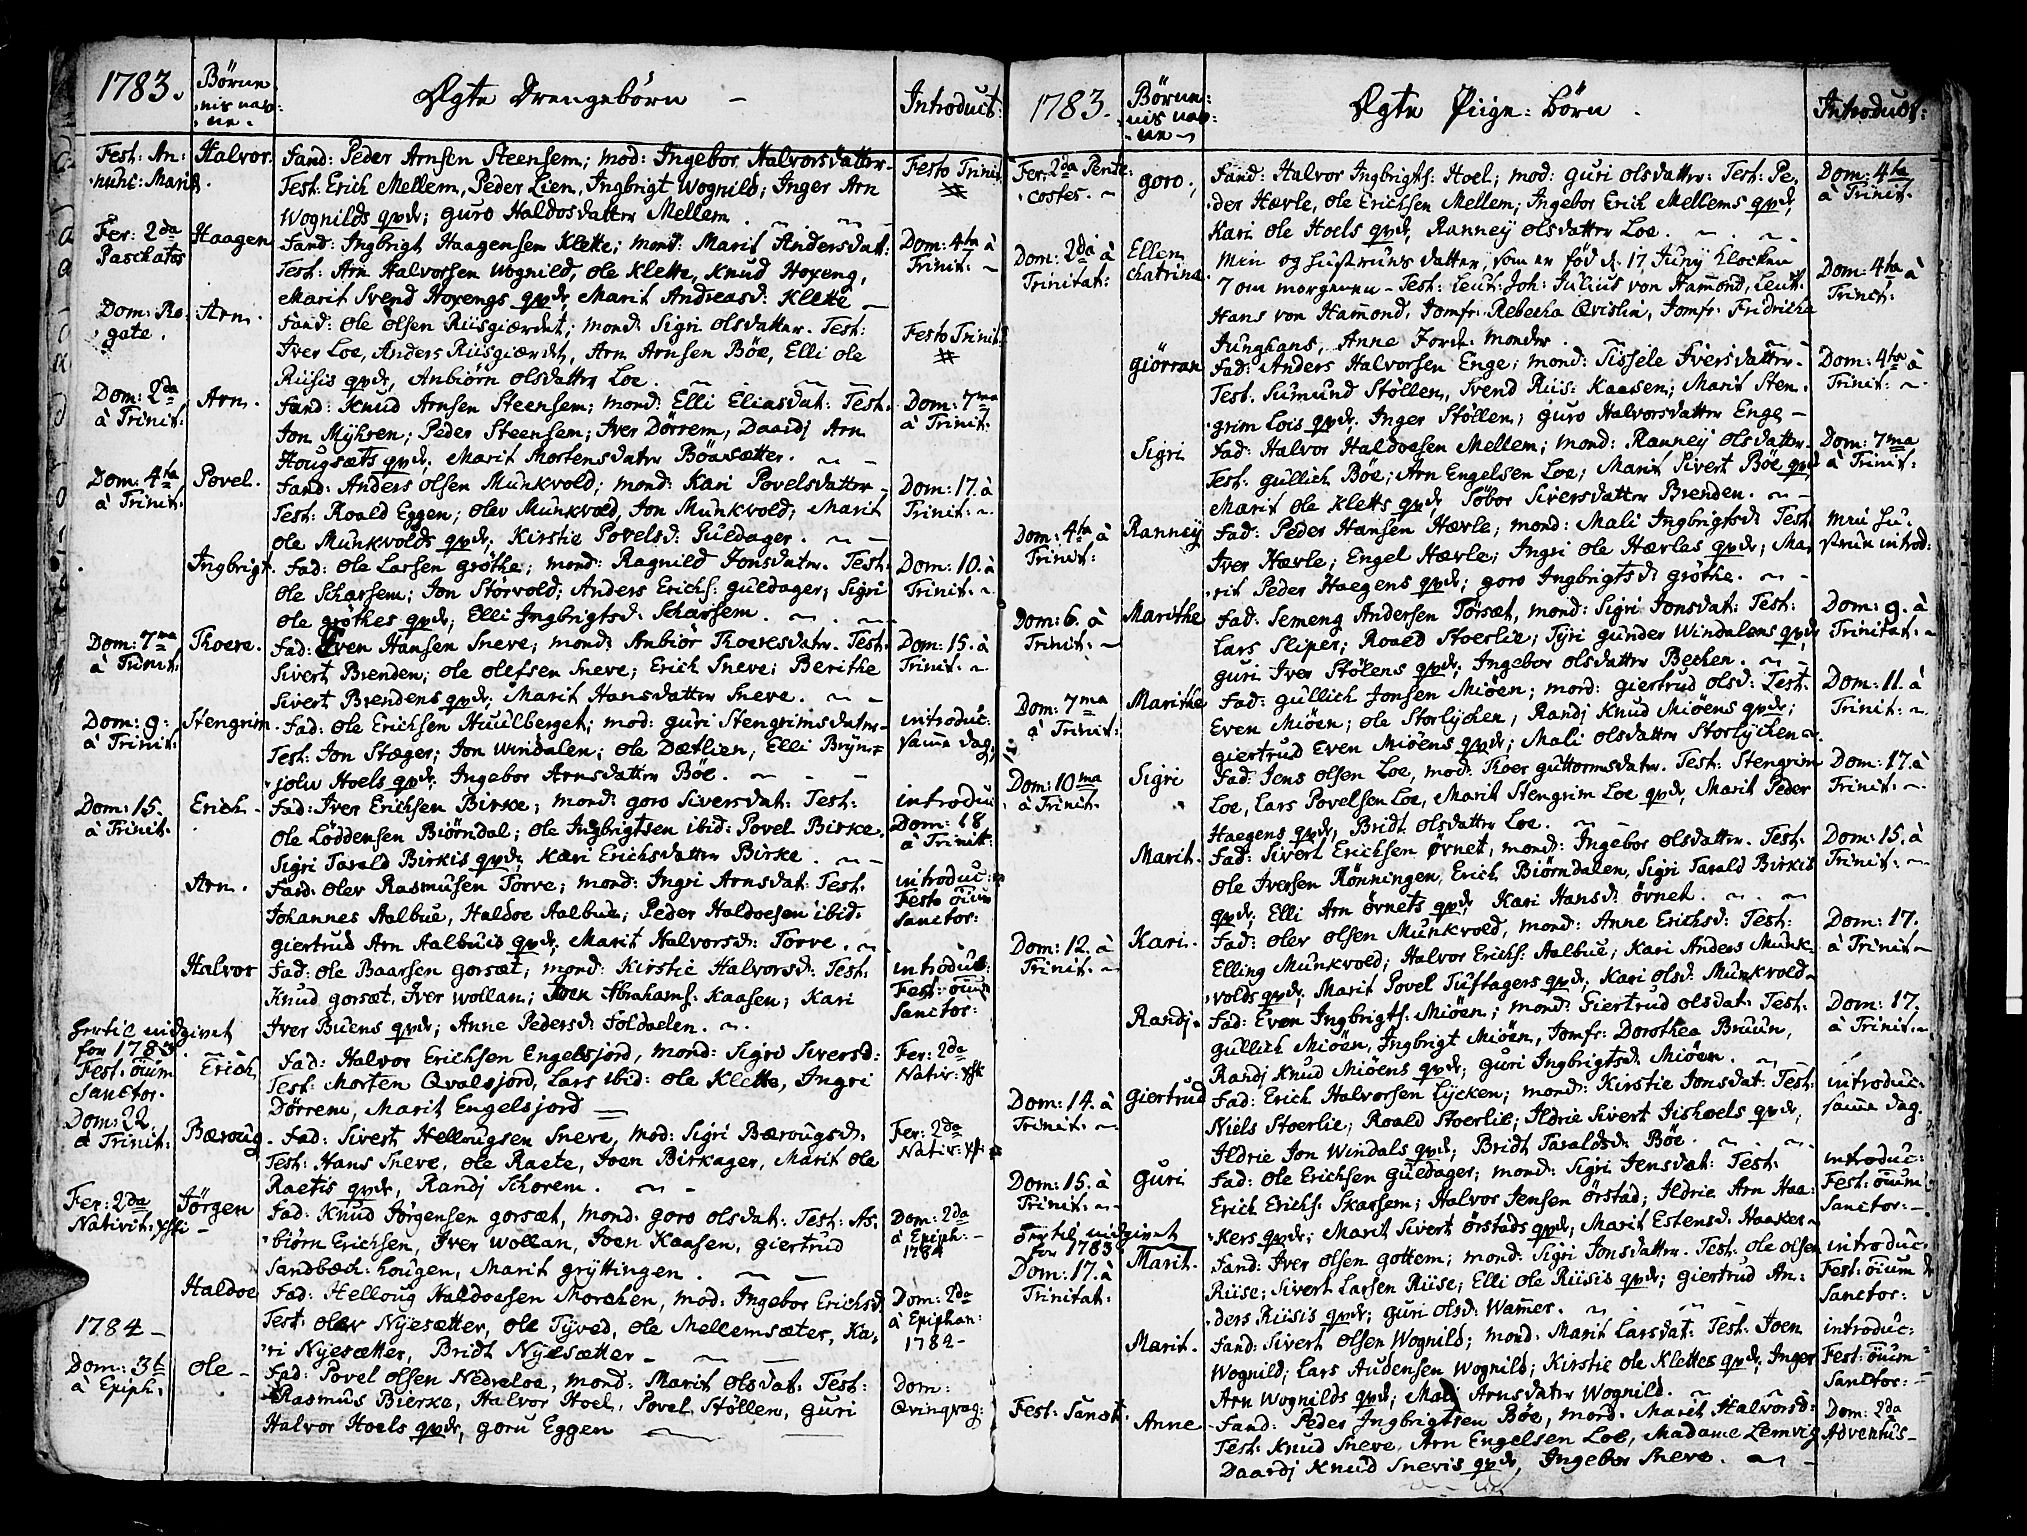 1783.
Børne-
nis nav-
ne.
Ægte Drengebørn
Introduct:
Fest: An-
nunc: Mariæ
Halvor.
Fand: Peder Arnsen Steensem; mod: Ingebor Halvorsdatter
Test: Erich Mellem, Peder Lien, Ingbrigt Wognild; Inger Arn
Wognilds qvde; Guro Haldosdatter Mellem.
Festo Trinit:
Fer: 2da
Paschatos
Haagen
Fand: Ingbrigt Haagensen Klette; mod: Marit Andersdat:
Test: Arn Halvorsen Wognild, Ole Klette, Knud Hoxeng,
Marit Svend Hoxengs qvde, Marit Andreasd: Klette
Dom: 4ta à
Trinit:
Dom: Ro-
gate.
Arn.
Fand: Ole Olsen Riisgiærdet; mod: Sigri Olsdatter. Test:
Iver Loe, Anders Riisgiærdet, Arn Arnsen Böe, Elli Ole
Riisis qvde, Anbiörn Olsdatter Loe.
Festo Trinit:
Dom: 2da
à Trinit:
Arn.
Fand: Knud Arnsen Steensem; mod: Elli Eliasdat: Test:
Jon Myhren; Peder Steensem; Iver Dörrem, Daardj Arn
Hougsæts qvde. Marit Mortensdatter Böesætter.
Dom: 7ma
à Trinit:
Dom: 4ta
à Trinit:
Povel.
Fand: Anders Olsen Munkvold; mod: Kari Povelsdatter
Test: Roald Eggen; Olev Munkvold, Jon Munkvold; Marit
Ole Munkvolds qvde; Kirstie Povelsd: Guldager.
Dom: 17. à
Trinit:
Ingbrigt.
Fad: Ole Larsen Gröthe; mod: Ragnild Jonsdatr. Test:
Ole Scharsem; Jon Storvold; Anders Erichs: Guldager; Sigri
Ole Gröthes qvde; Elli Ingbrigtsd: Scharsem.
Dom: 10. à
Trinit:
Dom: 7ma
à Trinit:
Thoere.
Fad: Even Hansen Sneve; mod: Anbior Thoeresdatr. Test:
Sivert Brenden; Ole Olefsen Sneve; Erich Sneve; Berithe
Sivert Brendens qvde, Marit Hansdatter Sneve.
Dom: 15. à
Trinit:
Dom: 9:
à Trinit:
Stengrim
Fad: Ole Erichsen Huulberget; mod: Guri Stengrimsdatter
Test: Jon Stæger; Jon Windalen; Ole Dætlien, Elli Bryn-
jolv Hoels qvde. Ingebor Arnsdatter Böe.
introduc:
samme dag.
Dom: 15.
à Trinit:
Erich.
Fad: Iver Erichsen Birke; mod: Goro Siversdat: Test:
Ole Löddensen Biörndal; Ole Ingbrigtsen ibid: Povel Birke.
Sigri Tarald Birkis qvde; Kari Erichsdatter Birke.
introduc
Dom: 18
à Trinit:
Arn.
Fand: Olev Rasmusen Torve; mod: Ingri Arnsdat: Test:
Johannes Aalbue, Haldoe Aalbue; Peder Haldoesen ibid:
Giertrud Arn Aalbues qvde; Marit Halvorsd: Torve.
introduc:
Festo öium
Sanctor:
Halvor
Fad: Ole Baarsen Gorsæt; mod: Kirstie Halvorsd: Test:
Knud Gorsæt, Iver Wollan; Joen Abrahams: Kaasen; Kari
Iver Buens qvde; Anne Pedersd: Foldaelen.
introduc:
Fest: öium
Sanctor:
hertil indgivet
for 1783.
Fest: öium
Sanctor.
Erich
Fad: Halvor Erichsen Engelsjord, mod: Sigri Siversd:
Test: Morten Qvalsjord, Lars ibid: Ole Klette, Ingri
Dörrem, Marit Engelsjord
Fer: 2da
Nativ: Xsti
Dom: 22
à Trinit:
Bæroug
Fad: Sivert Hellougsen Sneve, mod: Sigri Bærougsd:
Test: Hans Sneve, Ole Raete, Joen Birkager, Marit Ole
Raetis qvde, Randj Schorem.
Fer: 2da
Nativ: Xsti
Fer: 2da
Nativit: Xsti
Jörgen
Fad: Knud Jörgensen Gorsæt, mod: Goro Olsdat: Test: As-
biörn Erichsen, Iver Wollan, Joen Kaasen, Giertrud
Sandbæch: Lougen, Marit Gryttingen.
Dom: 2da
à Epiph:
1784
Haldoe
Fad: Helloug Haldoesen Morchen, mod: Ingebor Erichsd:
Test: Olev Nyesætter, Ole Tyved, Ole Mellemsæter, Ka-
ri Nyesætter, Bridt Nyesætter
Dom: 2da
à Epiphan:
1784
1784
Dom: 3t
à Epiph:
Ole
Fad: Povel Olsen Nedreloe, mod: Marit Olsdat: Test:
Rasmus Bierke, Halvor Hoel, Povel Stöllen, Guri
Halvor Hoels qvde, Goru Eggen
Dom:
Qvinqvag:
1783.
Børne-
nis nav-
ne
Ægte Piige-Børn.
Introduct:
Fer: 2da Pente-
costes.
Goro;
Fand: Halvor Ingbrigts: Hoel; mod: Guri Olsdatter: Test: Pe-
der Hævle, Ole Erichsen Mellem; Ingebor Erich Mellems qvde,
Kari Ole Hoels qvde, Ranney Olsdatter Loe.
Dom: 4ta
à Trinit:
Dom: 2da
Trinitat:
Ellen
Chatrina.
Min og Hustrues datter, som er föd d. 17 Juny Klocken
7 om morgenen - Test: Leut: Joh: Julius von Hamond, Leut:
Hans von Hamond, Jomfr: Rebecha Qvislin, Jomfr: Fridricha
Junghans, Anne Jorde-moder.
Dom: 4ta à
Trinit:
Giörran
Fad: Anders Halvorsen Enge; mod: Sissele Iversdatter
Test: Sumund Stöllen, Svend Riis: Kaasen; Marit Sten-
grim Lois qvde. Inger Stöllen; Guro Halvorsdatter Enge
Dom: 4ta à
Trinit:
Sigri
Fad: Halvor Haldoesen Mellem; mod: Ranney Olsdatter
Test: Gullich Böe; Arn Engelsen Loe; Marit Sivert Böe qvde
Marit Ole Kletts qvde, Söbor Siversdatter Brenden.
Dom: 7ma
à Trinit:
Dom: 4ta à
Trinit:
Ranney
Fad: Peder Hansen Hævle; mod: Mali Ingbrigtsd: Test:
Iver Hævle; Engel Hævle; Ingri Ole Hævles qvde; Ma-
rit Peder Haegens qvde; Goro Ingbrigtsd: Gröthe.
min hu-
strue introd:
Dom: 6. à
Trinit:
Marithe
Fad: Semeng Andersen Törsæt, mod: Sigri Jonsdat: Test:
Lars Sliper; Roald Stoerlie; Tyri Gunder Windalens qvde,
Guri Iver Stölens qvde; Ingebor Olsdatter Bechen.
Dom: 9. à
Trinitat:
Dom: 7ma
à Trinit:
Marithe
Fad: Gullich Jonsen Miöen; mod: Giertrud Olsd: Test:
Even Miöen; Ole Storlychen, Randj Knud Miöens qvde;
Giertrud Even Miöens qvde; Mali Olsdatter Storlychen.
Dom: 11. à
Trinit:
Dom: 10ma
à Trinit:
Sigri
Fad: Jens Olsen Loe, mod: Thoer Guttormsdatr. Test: Stengrim
Loe, Lars Povelsen Loe, Marit Stengrim Loe qvde, Marit Peder
Haegens qvde, Bridt Olsdatter Loe.
Dom: 17. à
Trinit:
Marit.
Fad: Sivert Erichsen Örnet, mod: Ingebor Olsdatter. Test:
Ole Iversen Rönningen, Erich Biörndalen, Sigri Tarald Birkis
qvde; Elli Arn Övnets qvde; Kari Hansd: Övnet.
Dom: 15. à
Trinit:
Dom: 12. à
Trinit:
Kari.
Fad: Olev Olsen Munkvold, mod: Anne Erichsd: Test:
Elling Munkvold; Halvor Erichs: Aalbue; Kari Anders Munk-
volds qvde; Marit Povel Tuftagers qvde; Kari Olsd: Munkvold
Dom: 17.
à Trinit
Randj.
Fad: Even Ingbrigts: Miöen; mod: Giertrud Olsdat: Test:
Gullich Miöen, Ingbrigt Miöen, Jomfr: Dorothea Bruun,
Randj Knud Miöens qvde; Guri Ingbrigtsd: Miöen.
Dom: 17.
à Trinit:
Dom: 14. à
Trinit:
Giertrud
Fad: Erich Halvorsen Lycken; mod: Kirstie Jonsdat: Test:
Niels Stoerlie; Roald Stoerlie; Ildrie Sivert Iishoels qvde,
Ildrie Jon Windals qvde; Bridt Taraldsd: Böe.
introduc:
samme dag.
Dom: 15. à
Trinit:
Guri
Fad: Ole Erichsen Guldager; mod: Sigri Jensdat: Test:
Erich Erichs: Skarsem; Halvor Jensen Örstad; Ildrie Arn Haa-
kers qvde; Marit Sivert Örstads qvde; Marit Estensd: Haaker
introduc:
Fest: öium
Sanctor:
Hertil indgivet
for 1783
Dom: 17. à
Trinitat:
Marit.
Fand: Iver Olsen Gottem; mod: Sigri Jonsdatter. Test: Ole Olsen
Riise; Sivert Larsen Riise; Elli Ole Riisis qvde; Giertrud An-
ders Riisis qvde; Guri Olsd: Wammer.
introduc:
Fest: öium
Sanctor:
Marit.
Fand: Sivert Olsen Wognild; mod: Marit Larsdat: Test: Joen
Wognild; Lars Audensen Wognild; Kirstie Ole Klettes qvde, Inger
Arn Wognilds qvde; Mali Arnsdatter Wognild.
introduc:
Fest: öium
Sanctor:
Fest: Sanct:
Anne
Fand: Peder Ingbrigtsen Böe, mod: Marit Halvorsd:
Test: Knud Sneve, Arn Engelsen Loe, Madame Lemvig
Daardj Knud Snevis qvde, Ingebor Sneve.
Dom: 2da
Adventus